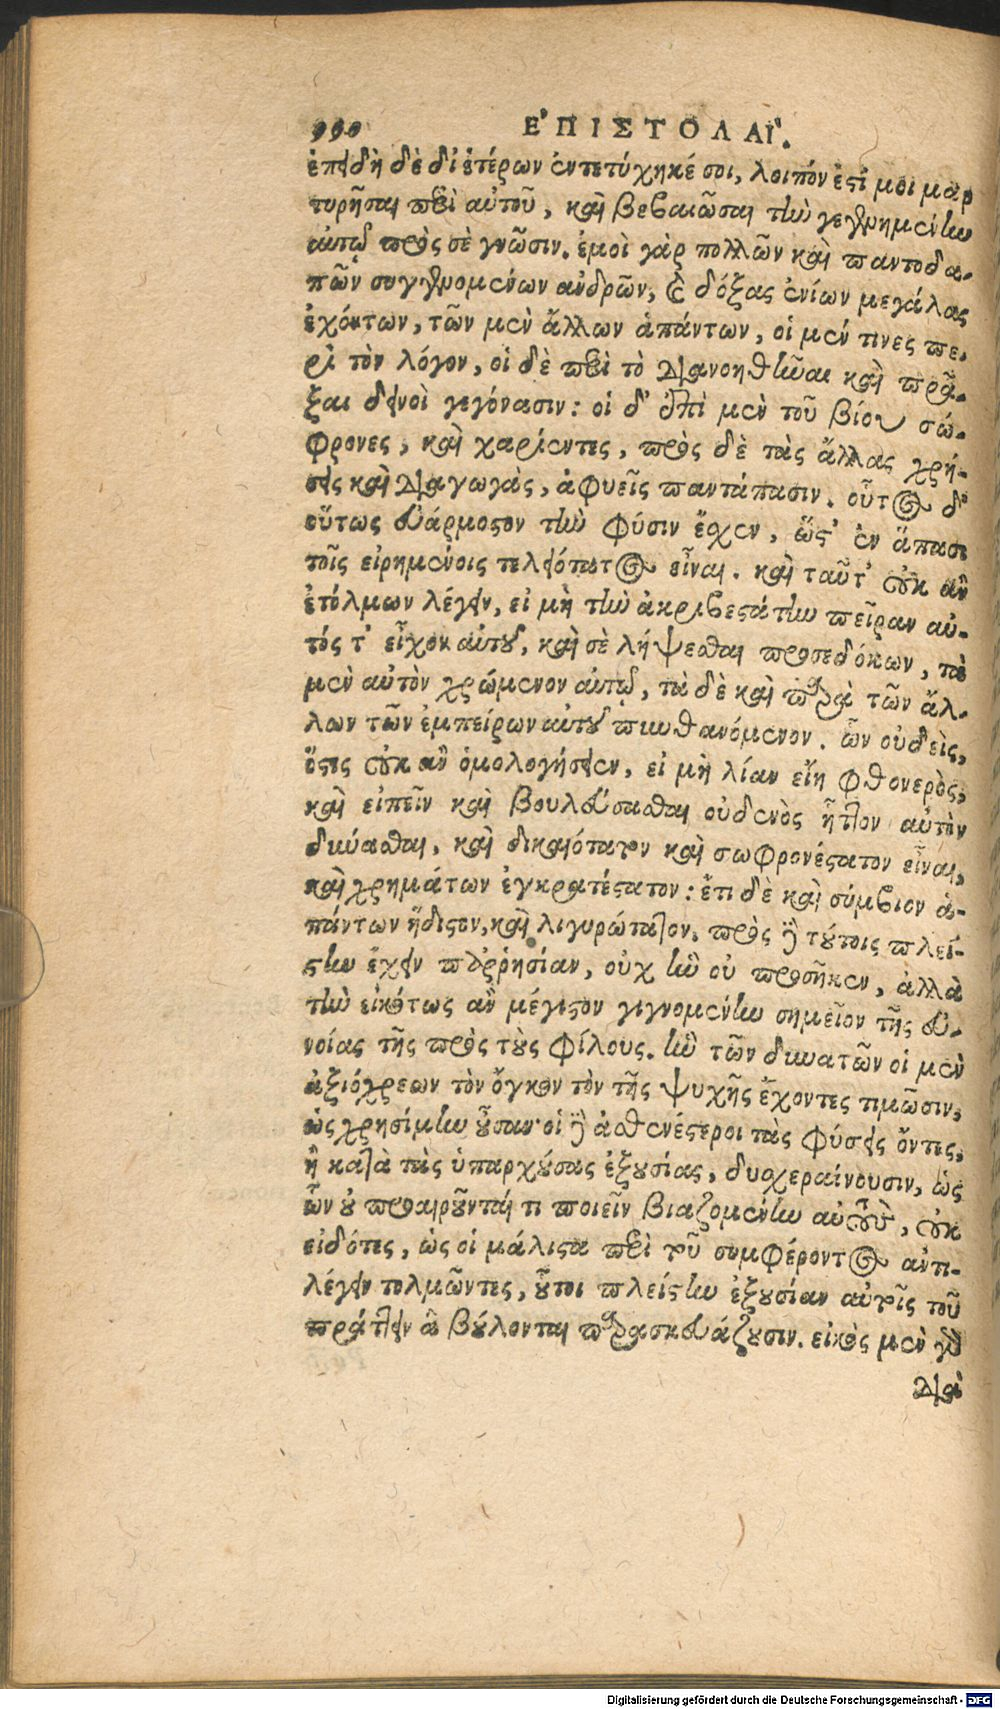 990 ἘΠΙΣΤΟΛΑΊ.
ἐπειδὴ δὲ δἰ ἑτέρων ἐντετύχηκέ σοι, λοιπόν ἐστί μοι μαρ
τυρῆσαι περὶ αὐτοῦ, καὶ βεβαιῶσαι τὴν γεγενημένην
αὐτῷ πρὸς σὲ γνῶσιν. ἐμοὶ γὰρ πολλῶν καὶ παντοδα-
πῶν συγγενομένων ἀνδρῶν, καὶ δόξας ἐνίων μεγάλας
ἐχόντων, τῶν μὲν ἄλλων ἁπάντων, οἱ μέν τινες πε-
ρὶ τὸν λόγον, οἱ δὲ περὶ τὸ διανοηθῆναι καὶ πρᾶ-
ξαι δεινοὶ γεγόνασιν: οἱ δ' ἐπὶ μὲν τοῦ βίου σώ-
φρονες, καὶ χαρίεντες, πρὸς δὲ τὰς ἄλλας χρή-
σεις καὶ διαγωγὰς, ἀφυεῖς παντάπασιν. οὗτος δ'
οὕτως εὐάρμοστον τὴν φύσιν ἔσχεν, ὥστ' ἐν ἅπασι
τοῖς εἰρημένοις τελειότατος εἶναι. καὶ ταῦτ' οὐκ ἂν
ἐτόλμων λέγειν, εἰ μὴ τὴν ἀκριβεστάτην πεῖραν αὐ-
τός τ' εἶχον αὐτοῦ, καὶ σὲ λήψεσθαι προσεδόκων, τὰ
μὲν αὐτὸν χρώμενον αὐτῷ, τὰ δὲ καὶ παρὰ τῶν ἄλ-
λων τῶν ἐμπείρων αὐτοῦ πυνθανόμενον. ὧν οὐδεὶς,
ὅστις οὐκ ἂν ὁμολογήσειεν, εἰ μὴ λίαν εἴη φθονερὸς,
καὶ εἰπεῖν καὶ βουλεύσασθαι οὐδενὸς ἧττον αὐτὸν
δύνασθαι, καὶ δικαιότατον καὶ σωφρονέστατον εἶναι,
καὶ χρημάτων ἐγκρατέστατον: ἔτι δὲ καὶ σύμβιον ἁ-
πάντων ἥδιστον, καὶ λιγυρώτατον, πρὸς δὲ τούτοις πλεί-
στην ἔχειν παρρησίαν, οὐχ ἣν οὐ προσῆκεν, ἀλλὰ
τὴν εἰκότως ἂν μέγιστον γιγνομένην σημεῖον τῆς εὐ-
νοίας τῆς πρὸς τοὺς φίλους. ἣν τῶν δυνατῶν οἱ μὲν
ἀξιόχρεων τὸν ὄγκον τὸν τῆς ψυχῆς ἔχοντες τιμῶσιν,
ὡς χρησίμην οὖσαν· οἱ δὲ ἀσθενέστεροι τὰς φύσεις ὄντες,
ἢ κατὰ τὰς ὑπαρχούσας ἐξουσίας, δυσχεραίνουσιν, ὡς
ὧν οὐ προαιροῦνταί τι ποιεῖν βιαζομένην αὐτοὺς, οὐκ
εἰδότες, ὡς οἱ μάλιστα περὶ τοῦ συμφέροντος ἀντι-
λέγειν τολμῶντες, οὗτοι πλείστην ἐξουσίαν αὐτοῖς τοῦ
πράττειν ἃ βούλονται παρασκευάζουσιν. εἰκὸς μὲν γὰρ
διὰ
Digitalisierung gefördert durch die Deutsche Forschungsgemeinschaft - DFG